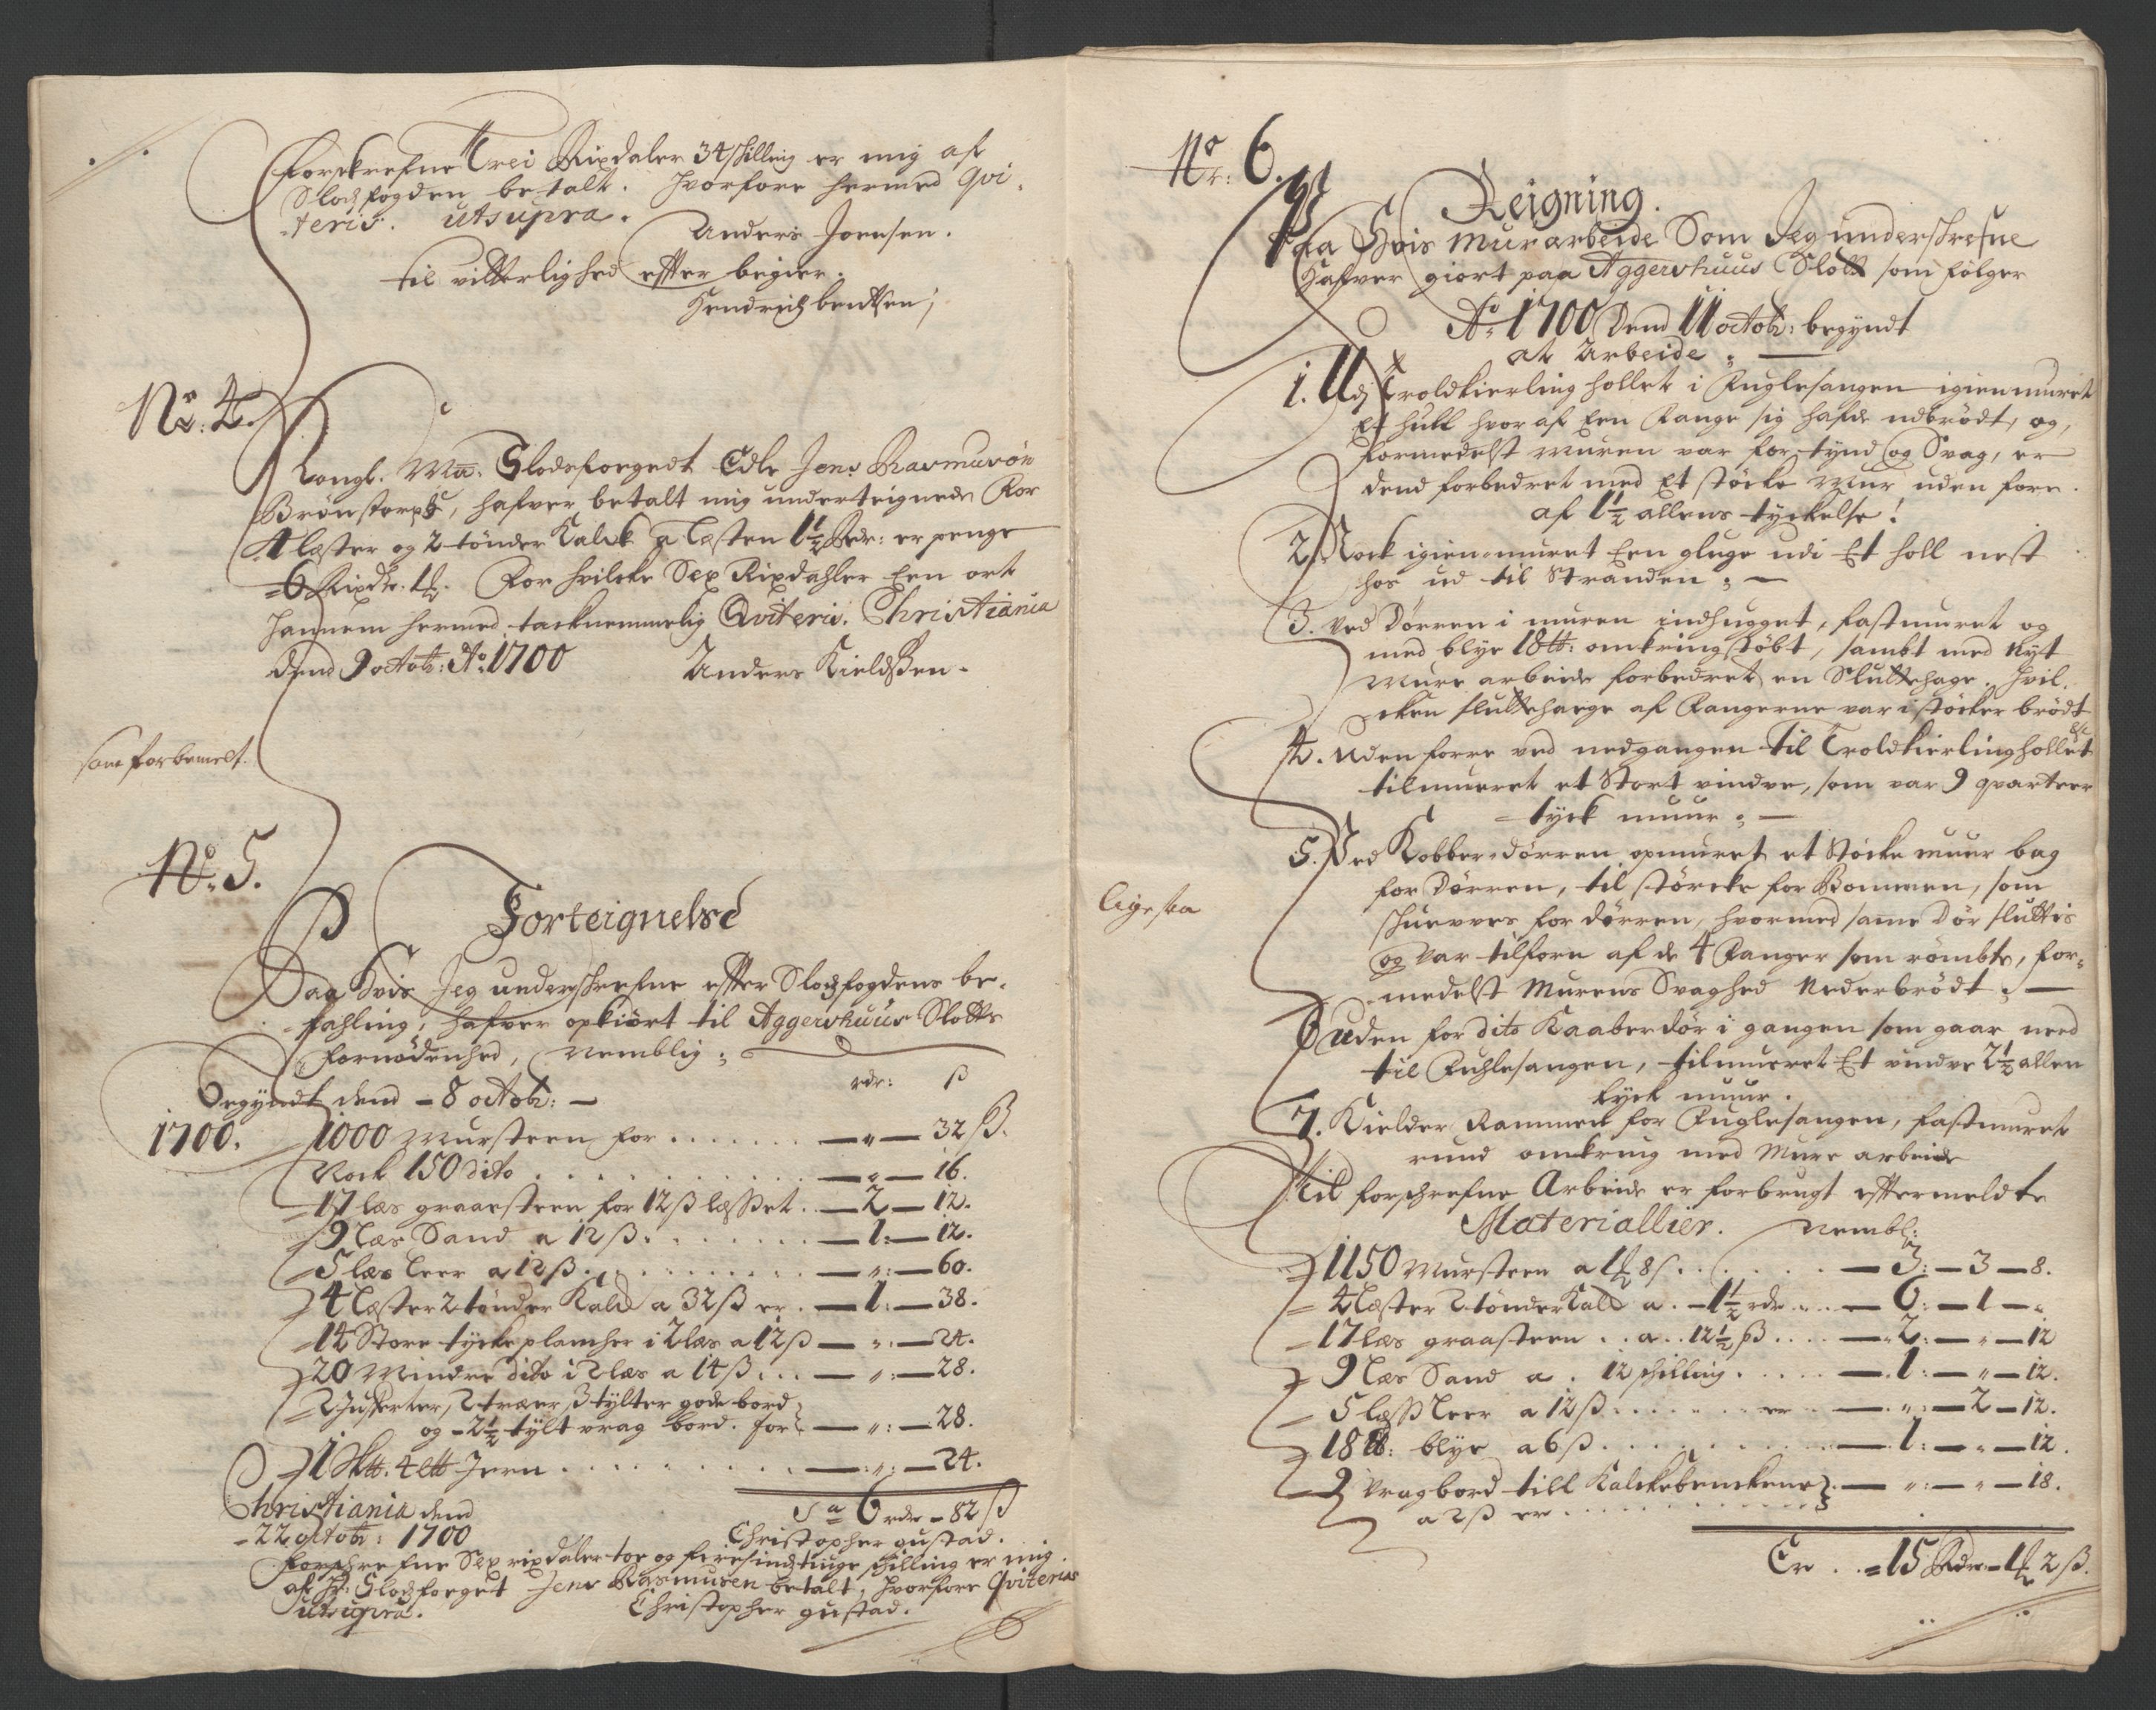 Forschrefne Trei Rixdaler 34 skilling er mig af
Slodzfogden betalt. hvorfore hermed Qvi-
teris. utsupra.
Anders Joensen.
til vitterlighed effter begier.
Hendrich bentsen;
No: 4.
Kongl. Ma. Slodsforgedt Edle Jens Rasmusøn
Brønstorph, hafver betalt mig underteignede For
4 lester og 2 tønder Kalck a Lesten 1½ Rdr: er penge
6 Rixdr. 1 ort. For hvilcke Sex Rixdahler Een ort
hannem hermed tacknemmelig Qviteris. Christiania
dend 9 octob: Ao: 1700
Anders KieldsSen.
som forbemelt.
No: 5.
Forteignelse
Paa hvis Jeg underschrefne effter Slodzfogdens be-
fahling, hafver opkiørt til Aggershuus Slotts
fornødenhed, Nemblig;
rdr: ß
Begyndt dend - 8 octob: -
1700. 1000 Mursteen for ....... — „ — 32 ß.
Nock 150 dito ....... — „ — 16.
17 læs graaesteen for 12 ß læsset .. — 2 — 12.
9 læs Sand a 12 ß ....... — 1: — 12.
5 læs leer a 12 ß ....... — „: — 60.
4 Læster 2 tønder Kalck a 32 ß er . — 1: — 38.
14 Store tycke plancher i 2 læs a 12 ß — „: — 24.
20 Mindre dito i 2 læs a 14 ß ... — „: — 28.
2 Jufferter, 2 træer, 3 tylter gode bord
og - 2½ tylt vrag bord. for — „: — 28.
1 Sktt. 4 ltt Jern ....... — „: — 24.
Sa 6 rdr - 82 ß
Christiania dend
22 octob: 1700
Christopher gustad.
Forschrefne Sex rixdaler toe og firesindstiuge skilling er mig
af Hr: Slodzforget Jens Rasmusen betalt, hvorfore Qviteris
utsupra.
Christopher gustad.
No: 6.
Reigning.
Paa Hvis Murarbeide Som Jeg underschrefne
Hafver giort paa Aggershuus Slott som følger
Ao 1700 Dend 11 octob: begyndt
at Arbeide ;
1. Udj Troldkierling hollet i Fuglesangen igien muret
Et hull hvoraf Een Fange sig hafde udbrødt, og,
formedelst muren var for tynd og Svag, er
dend forbedret med Et støcke Mur uden fore
af 1½ allens tyckelse!
2. Nock igien muret Een gluge udi Et holl nest
hos ud til Stranden ;
3. Ved Dørren i muren indhugget, fastmuret og
med blye 18 ℔: omkring støbt, sambt med Nyt
Mure arbeide forbedret en Sluttehage, hvil-
cken sluttehage af Fangerne var i støcker brødt
4. Uden forre ved nedgangen til Troldkierling hollet
tilmueret et Stort vindve, som var 9 qvarteer
tyck muur ;
ligesaa
5. Ved Kobber-dørren opmuret et Støcke muur bag
for Dørren, til størcke for Bommen, som
skuevves for dørren, hvormed same Dør sluttis
og Var tilforn af de 4 Fanger som rømbte, for-
medelst Murens Svaghed Nederbrødt.
6 uden for dito Kaaberdør i gangen som gaar need
til Fuhlesangen, tilmueret Et vindve 2½ allen
tyck muur.
7. Kielder Rammen for Fuglesangen, fastmuret
rund omkring med Mure arbeide
Til forschrefne Arbeide er forbrugt effter meldte
Materiallier. Nembl:
1150 Mursteen a 1 ort 8 ß ...... — 3: — 3 — 8.
4 Læster 2 tønder Kalck a . - 1½ rdr ... — 6: — 1 — „
17 læs graasteen .. a .. 12½ ß .... — 2: — „ — 12
9 læs Sand a . 12 skilling ..... — 1: — „ — 12.
5 læss leer a 12 ß ...... er — „: — 2 — 12.
18 ℔: blye a 6 ß ....... — 1: — „ — 12.
9 Vragbord till Kalckebenckene — „: — „ — 18.
a 2 ß er ......
Er .. = 15 Rdr - 1 ort 2 ß.